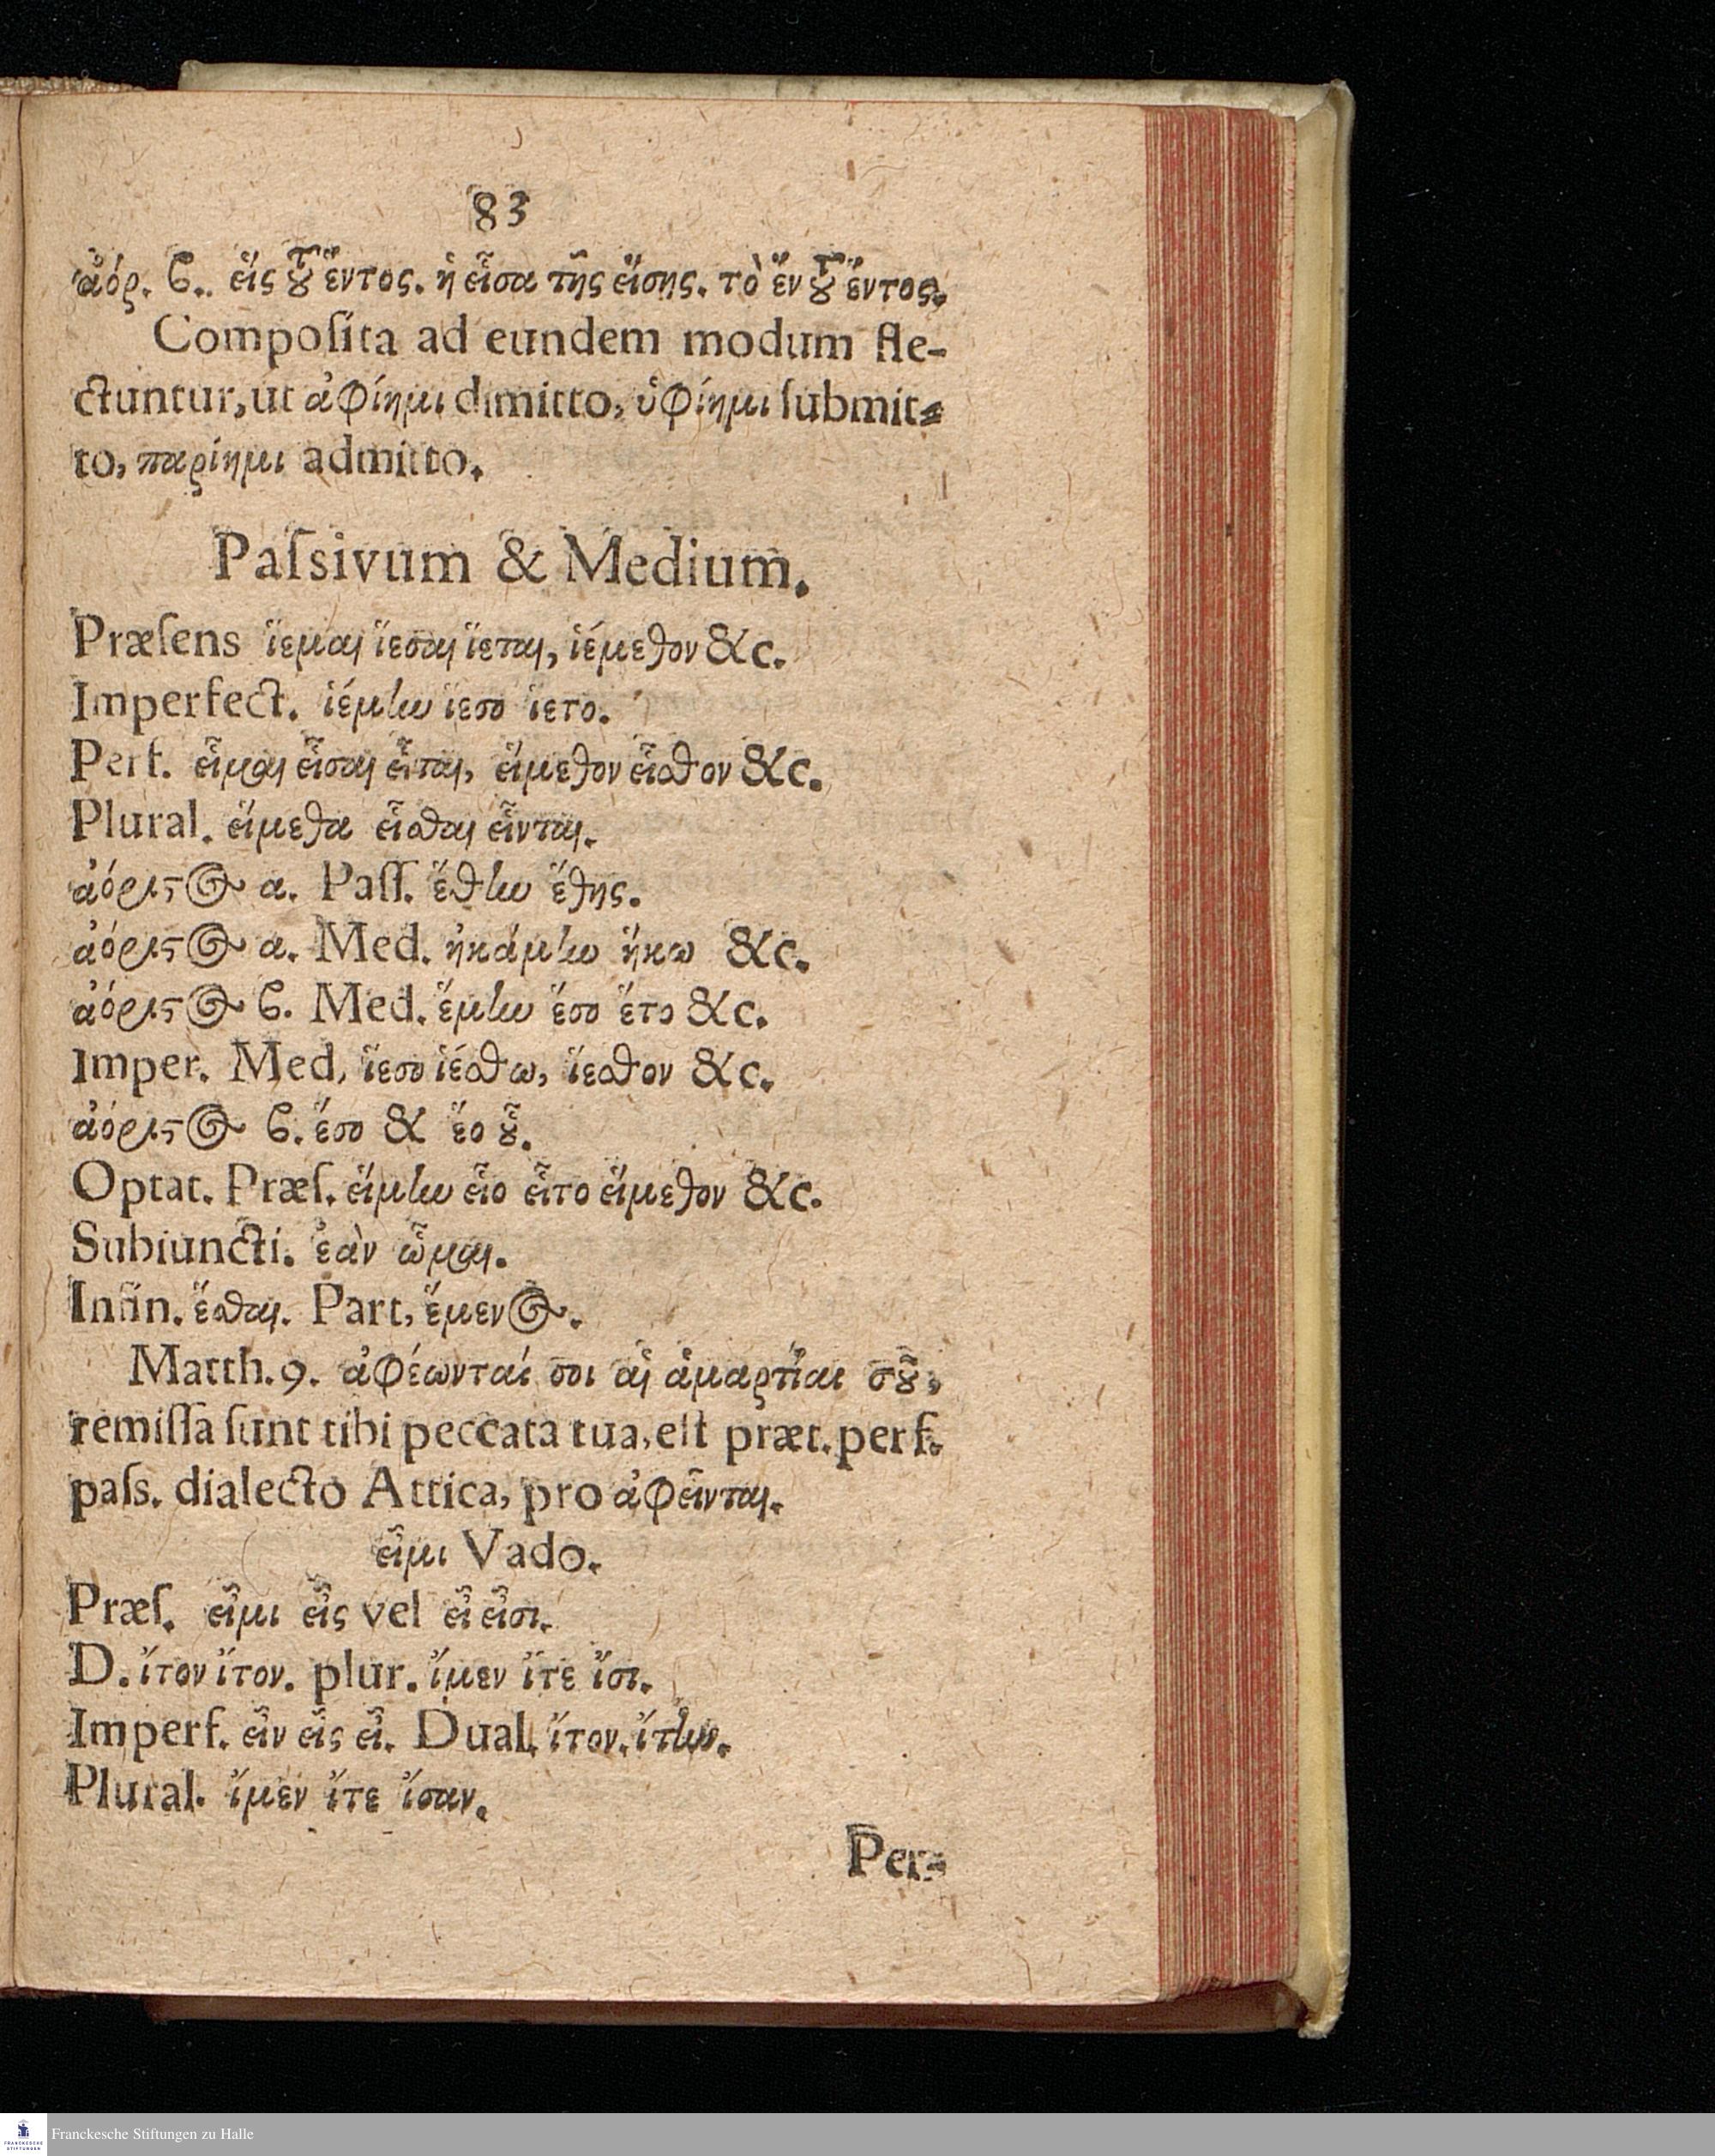 83
ἀόρ. ϐ. εἵς τοῦ ἕντος. ἡ εἷσα τῆς εἵσης. τὸ ἕν τοῦ ἕντος.
Compoſita ad eundem modum fle-
ctuntur, ut ἀφίημι dimitto, ὑφίημι ſubmit-
to, παρίημι admitto.
Paſsivum & Medium.
Præſens ἵεμαι ἵεσαι ἵεται, ἱέμεθον &c.
Imperfect. ἱέμην ἵεσο ἵετο.
Perf. εἷμαι εἷσαι εἷται, εἵμεθον εἷσθον &c.
Plural. εἵμεθα εἷσθαι εἷνται.
ἀόριστος α. Paſſ. ἕθην ἕθης.
ἀόριστος α. Med. ἡκάμην ἥκω &c.
ἀόριστος ϐ. Med. ἕμην ἕσο ἕτο &c.
Imper. Med, ἵεσο ἱέσθω, ἵεσθον &c.
ἀόριστος ϐ. ἕσο & ἕο οὗ.
Optat. Præſ. εἵμην εἷο εἷτο εἵμεθον &c.
Subiuncti. ἐὰν ὦμαι.
Infin. ἕσθαι. Part, ἕμενος.
Matth. 9. ἀφέωνταί σοι αἱ ἁμαρτίαι σοῦ,
remiſſa ſunt tibi peccata tua, eſt præt. perf.
paſs. dialecto Attica, pro ἀφεῖνται.
εἶμι Vado.
Præſ. εἶμι εἶς vel εἶ εἶσι.
D. ἴτον ἴτον. plur. ἴμεν ἴτε ἴσι.
Imperf. εἶν εἶς εἶ. Dual. ἴτον. ἴτην.
Plural. ἴμεν ἴτε ἴσαν.
Per-
Franckesche Stiftungen zu Halle
FRANCKESCHE STIFTUNGEN